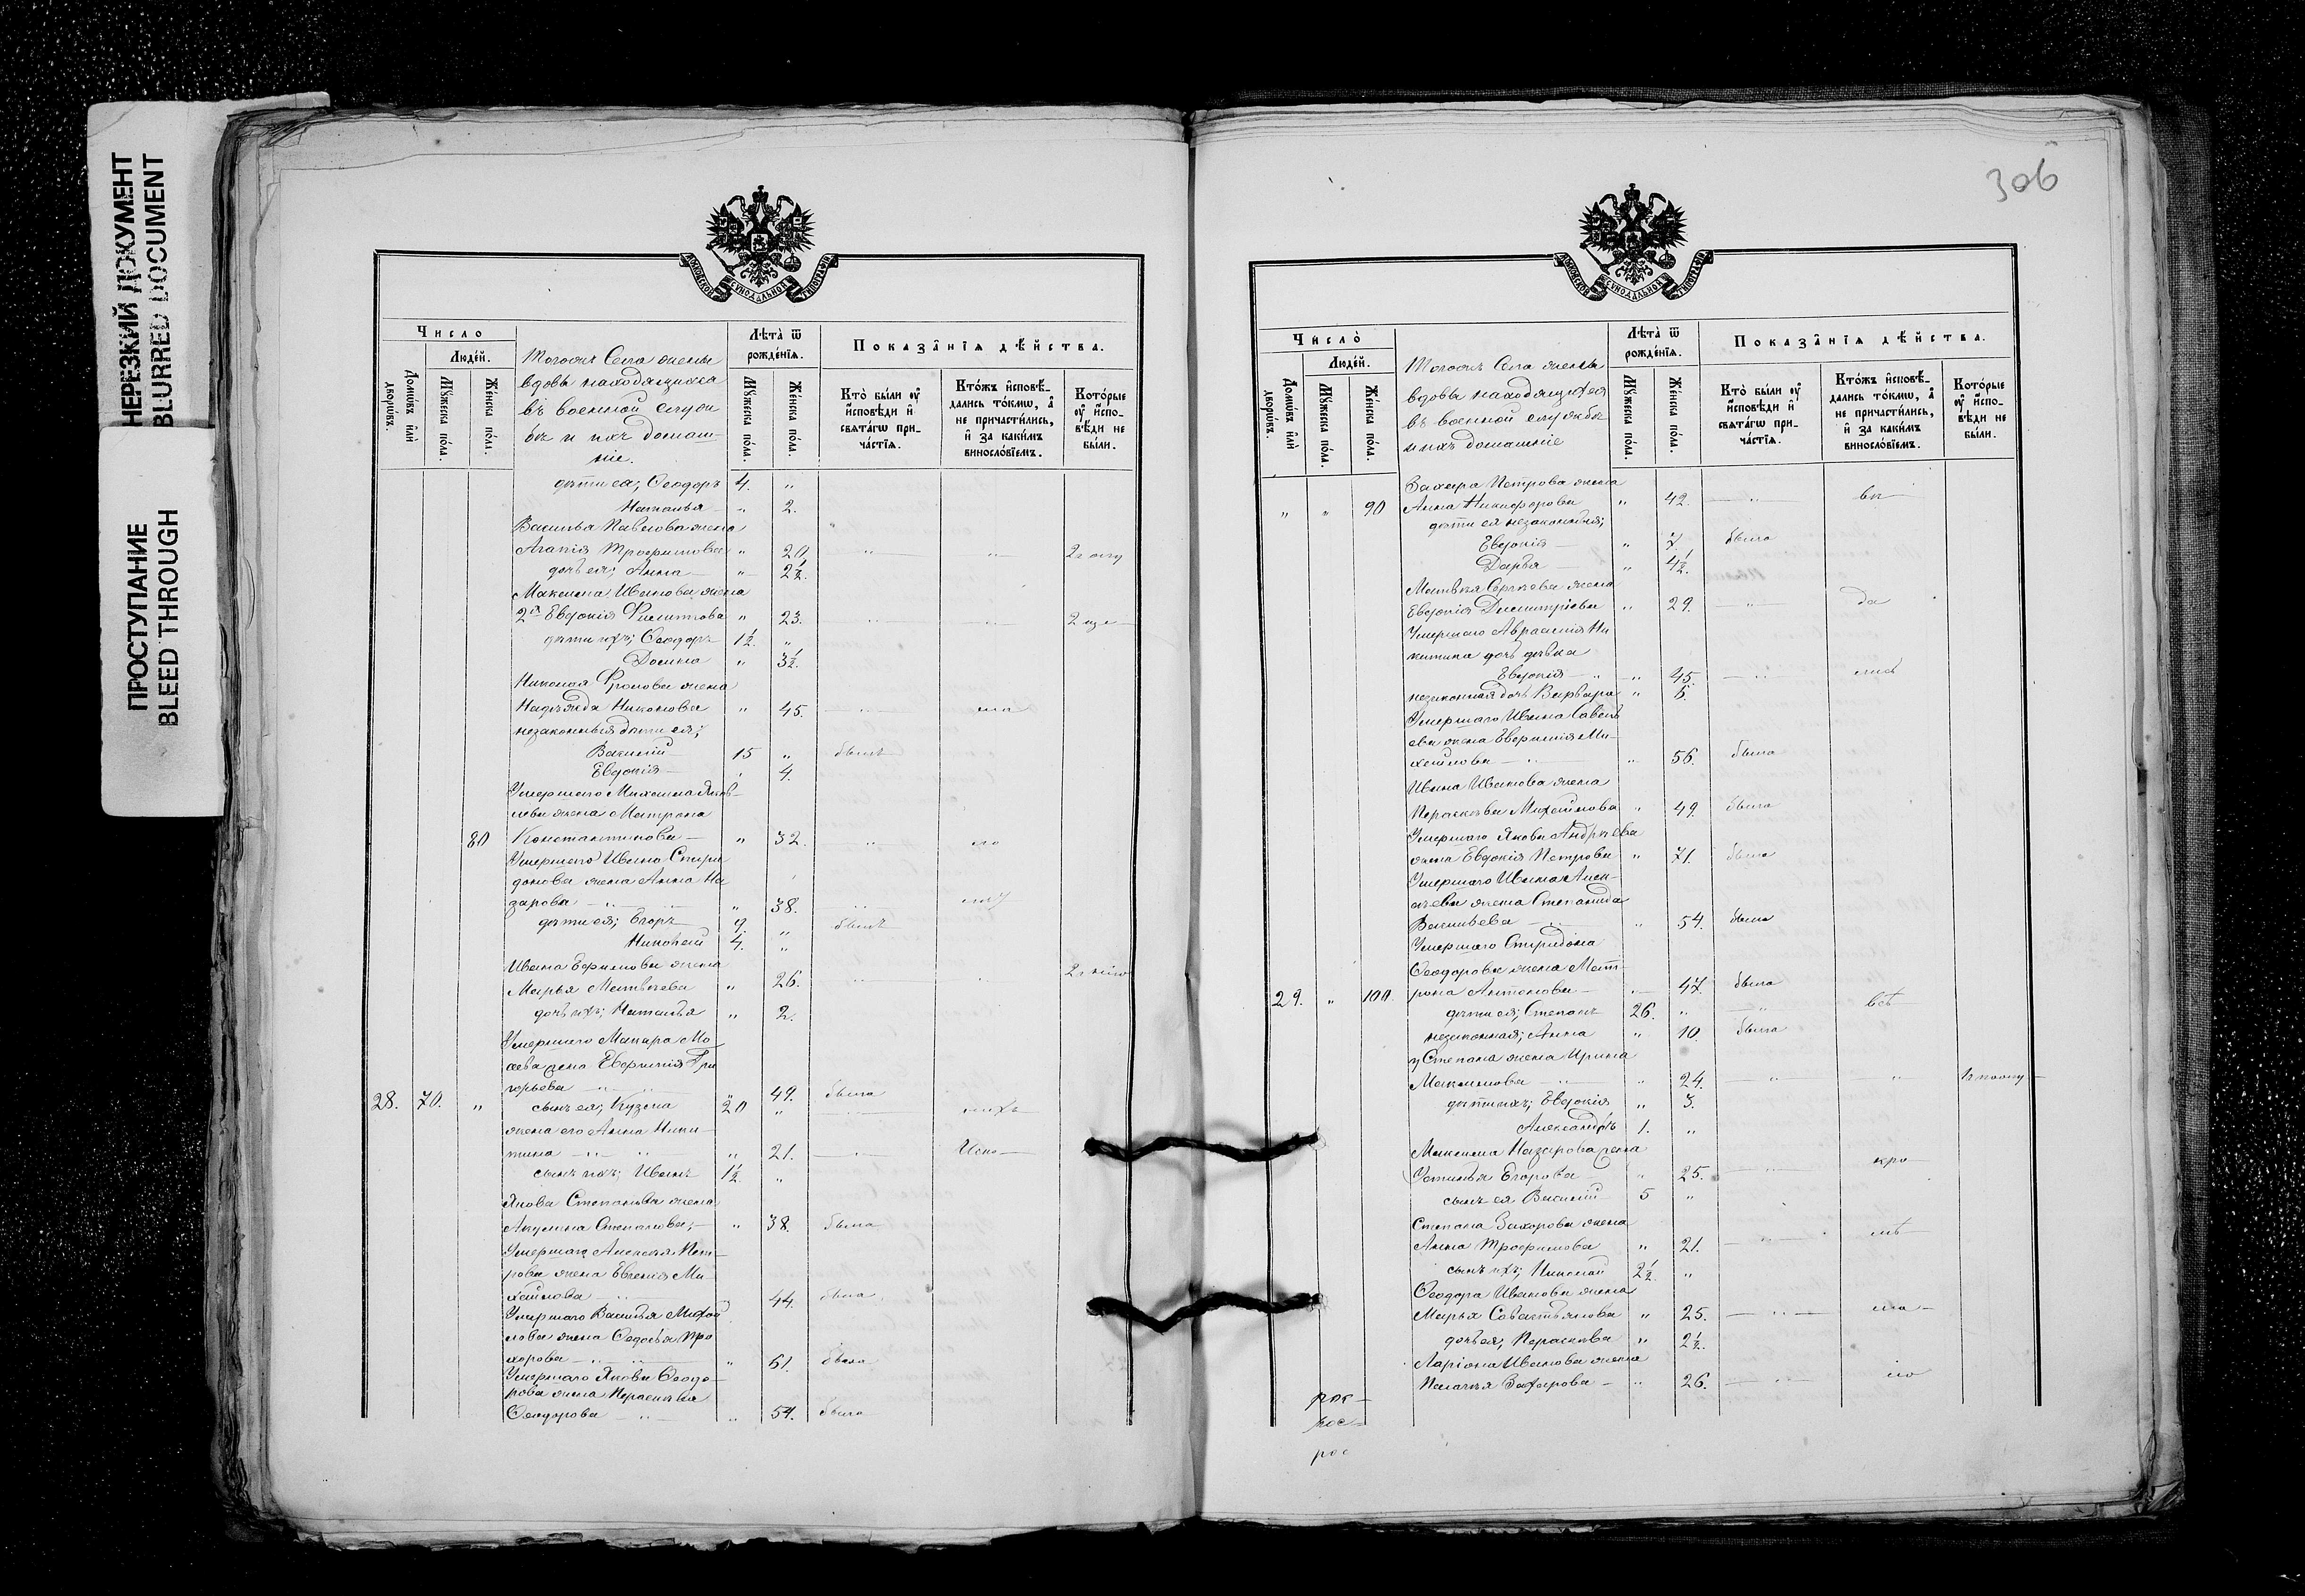 НЕРЕЗКИЙ ДОКУМЕНТ
BLURRED DOCUMENT
ПРОСТУПАНИЕ
BLEED THROUGH
МОСКОВСКОЙ СУНОДАЛЬНОЙ ТИПОГРАФІИ
Число
Людей.
Домовъ или дворовъ.
Мужеска пола.
Женска пола.
Тогожъ Села жены
вдовы находящихся
въ военной служ
бѣ и ихъ домаш-
ніе.
Лѣта ѿ рожденїѧ.
Мужеска пола.
Женска пола.
Показанїѧ дѣйства.
Кто были оу исповѣди и свѧтагѡ причастїѧ.
Ктожъ исповѣдались токмѡ, а не причастились, и за какимъ винословїемъ.
Которые оу исповѣди не были.
дѣти ея; Ѳеодоръ 4. "
Наталья " 2.
Василья Павлова жена
Агапія Трофимова " 20
дочь ея; Анна " 2½.
Максима Иванова жена
2я Евдокія Филиппова " 23.
дѣти ихъ; Ѳеодоръ 1½. "
Домна " 3½.
Николая Фролова жена
Надежда Никонова " 45.
незаконныя дѣти ея;
Василій 15 " былъ
Евдокія " 4.
Умершаго Михаила Яков-
лева жена Матрона
80 Константинова " 32.
Умершаго Ивана Спири
донова жена Анна На
зарова " 38.
дѣти ея; Егоръ 9. " былъ
Николай 4. "
Ивана Ефимова жена
Марья Матвѣева " 26.
дочь ихъ; Наталья " 2.
Умершаго Макара Мо
сева жена Евфимія Гри
горьева " 49. была
28. 70. " сынъ ея; Кузьма 20 "
жена его Анна Ники-
тина " 21.
сынъ ихъ; Иванъ 1½. "
Якова Степанова жена
Акулина Степанова; " 38. была
Умершаго Алексѣя Пет-
рова жена Евгенія Ми
хайлова 44. была
Умершаго Василья Михай
лова жена Ѳедосья Про
хорова " 61. была
Умершаго Якова Ѳеодо-
рова жена Парасковья
Ѳеодорова " 54. была
306
МОСКОВСКОЙ СУНОДАЛЬНОЙ ТИПОГРАФІИ
Число
Людей.
Домовъ или дворовъ.
Мужеска пола.
Женска пола.
Тогожъ Села жены
вдовы находящихся
въ военной службѣ
и ихъ домашніе
Лѣта ѿ рожденїѧ.
Мужеска пола.
Женска пола.
Показанїѧ дѣйства.
Кто были оу исповѣди и свѧтагѡ причастїѧ.
Ктожъ исповѣдались токмѡ, а не причастились, и за какимъ винословїемъ.
Которые оу исповѣди не были.
Захара Петрова жена
" " 90 Анна Никифорова " 42.
дѣти ея незаконныя;
Евдокія " 7. была
Дарья " 4½.
Матвѣя Сергѣева жена
Евдокія Димитріева " 29. да
Умершаго Авраамія Ни
китина дочь дѣвка
Евдокія " 45.
незаконная дочь Варвара " 6.
Умершаго Ивана Савель
ева жена Евфимія Ми-
хайлова " 56. была
Ивана Иванова жена
Парасковья Михайлова " 49. была
Умершаго Якова Андреева
жена Евдокія Петрова " 71. была
Умершаго Ивана Алек-
сѣева жена Степанида
Васильева " 54. была
Умершаго Спиридона
Ѳеодорова жена Мат-
29. " 100. рона Антонова 47. была
дѣти ея; Степанъ 26. "
незаконная; Анна " 10. была
у Степана жена Ирина
Максимова " 24.
дѣти ихъ; Евдокія " 3.
Александръ 1. "
Максима Назарова жена
Устинья Егорова " 25.
сынъ ея Василій 5 "
Степана Захорова жена
Анна Трофимова " 21.
сынъ ихъ; Николай 2½. "
Ѳеодора Иванова жена
Марья Савастьянова " 25.
дочь ея; Парасковья " 2½.
Ларіона Иванова жена
Пелагея Захарова " 26.